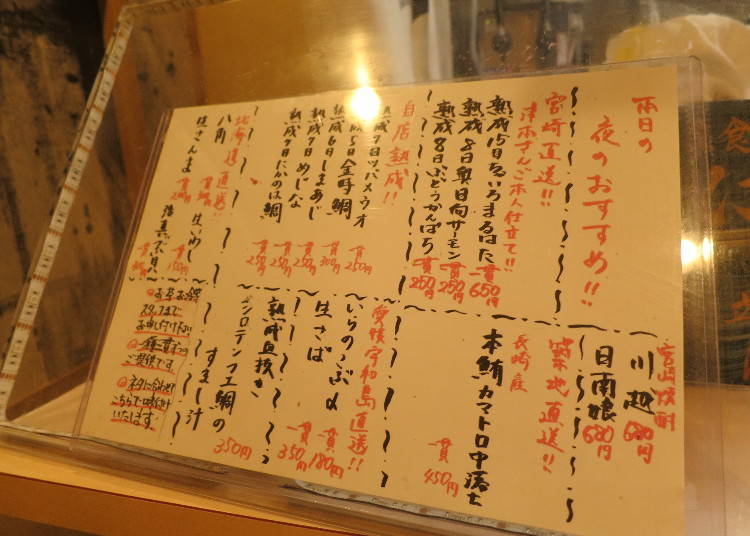 本日の
夜のおすすめ!!
宮崎直送!!
津本さんご本人仕立て!!
熟成15日 まるはた 一貫650円
熟成8日奥日向サーモン 一貫250円
熟成8日ぶどうかんぱち 一貫250円
自店熟成!!
熟成7日ツバメウオ 一貫250円
熟成5日金時鯛 一貫300円
熟成6日しまあじ 一貫250円
熟成7日めじな 一貫250円
熟成7日にたかのは鯛 一貫250円
北海道直送!!
八角
生さんま
生いわし 一貫150円
宮崎焼酎
川越 680円
日南娘 680円
築地直送!!
長崎産
本鮪カマトロ中落ち
一貫 450円
愛媛宇和島直送!!
いらのっぶα 一貫180円
生さば 一貫350円
熟成血抜き
メシロテンフエ鯛の
すまし汁 350円
スタッフまで
お申し付け下さい
一種一貫ずつの
ご提供です。
ネタに合わせて
こちらで味付け
いたします。